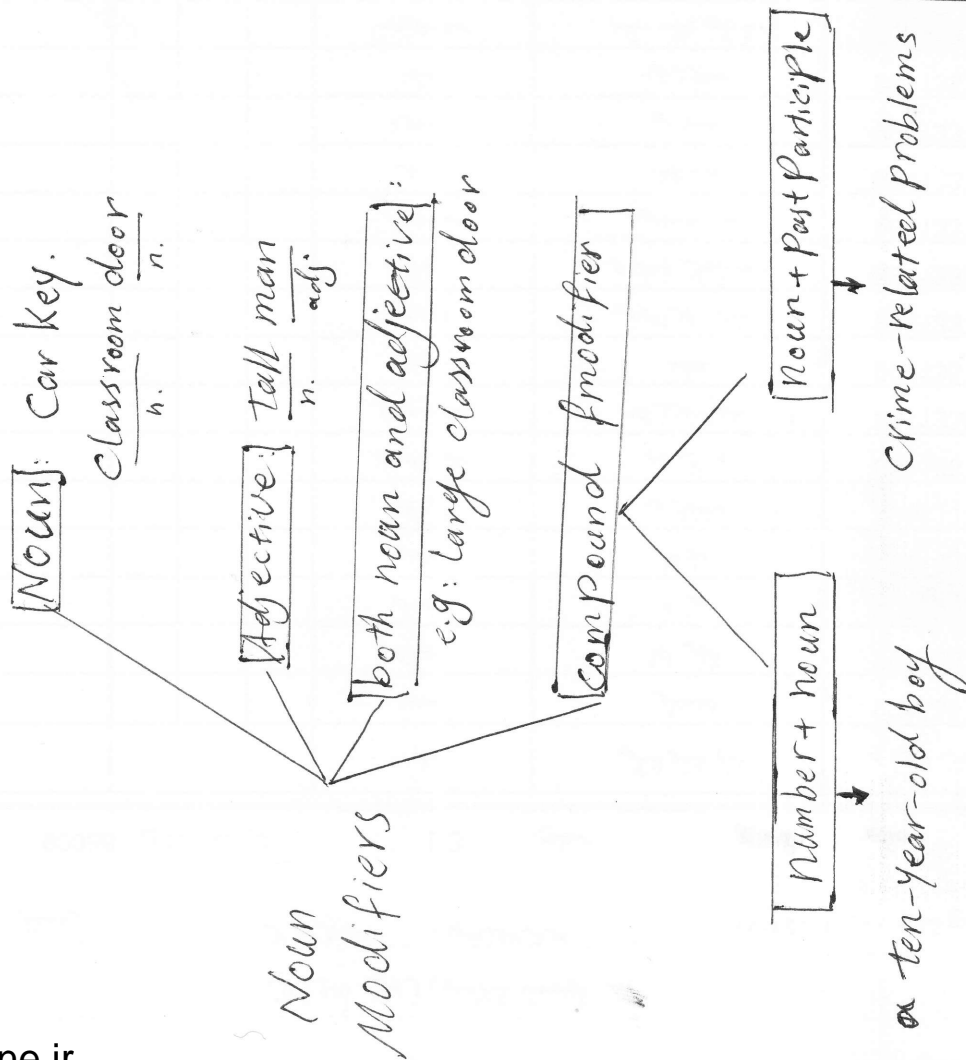 Noun
Modifiers
Noun: Car key.
Classroom door
n. n.
Adjective: tall man
n. adj
both noun and adjective:
e.g: large classroom door
Compound modifier
number + noun
a ten-year-old boy
noun + Past Participle
Crime-related problems
pe.ir